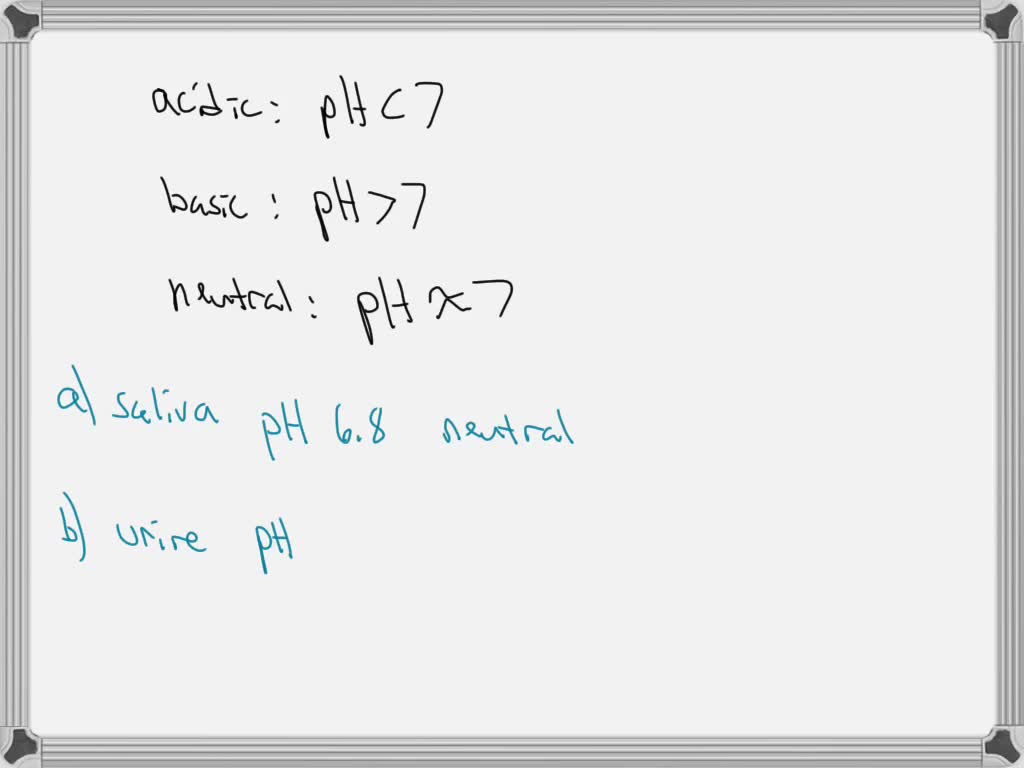 acidic: pH < 7
basic: pH > 7
neutral: pH ≈ 7
a) saliva pH 6.8 neutral
b) urine pH